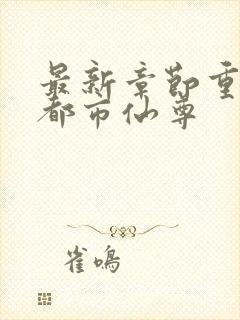 最新章节重
都市仙尊
雀鸣